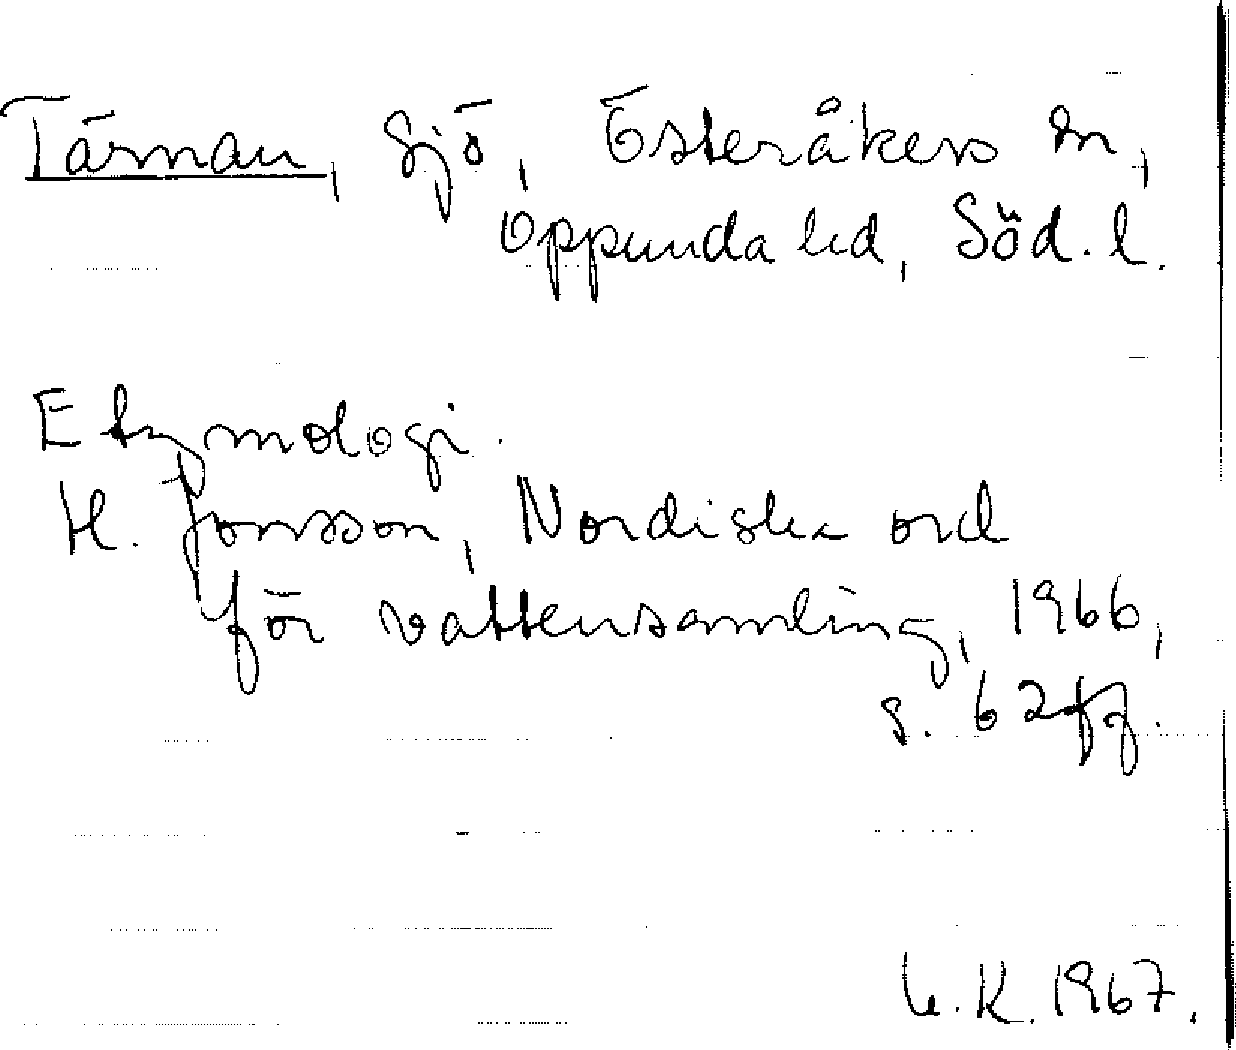 Tärnan, sjö, Österåkers sn,
Oppunda hd, Söd. l.
Etymologi.
H. Jonsson, Nordiska ord
för vattensamling, 1966,
s. 62 ff.
U.K. 1967.